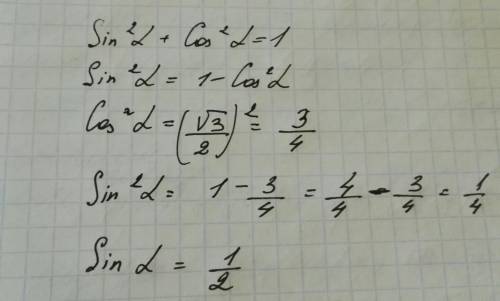 Sin²α + Cos²α = 1
Sin²α = 1 - Cos²α
Cos²α = (√3/2)² = 3/4
Sin²α = 1 - 3/4 = 4/4 - 3/4 = 1/4
Sin α = 1/2